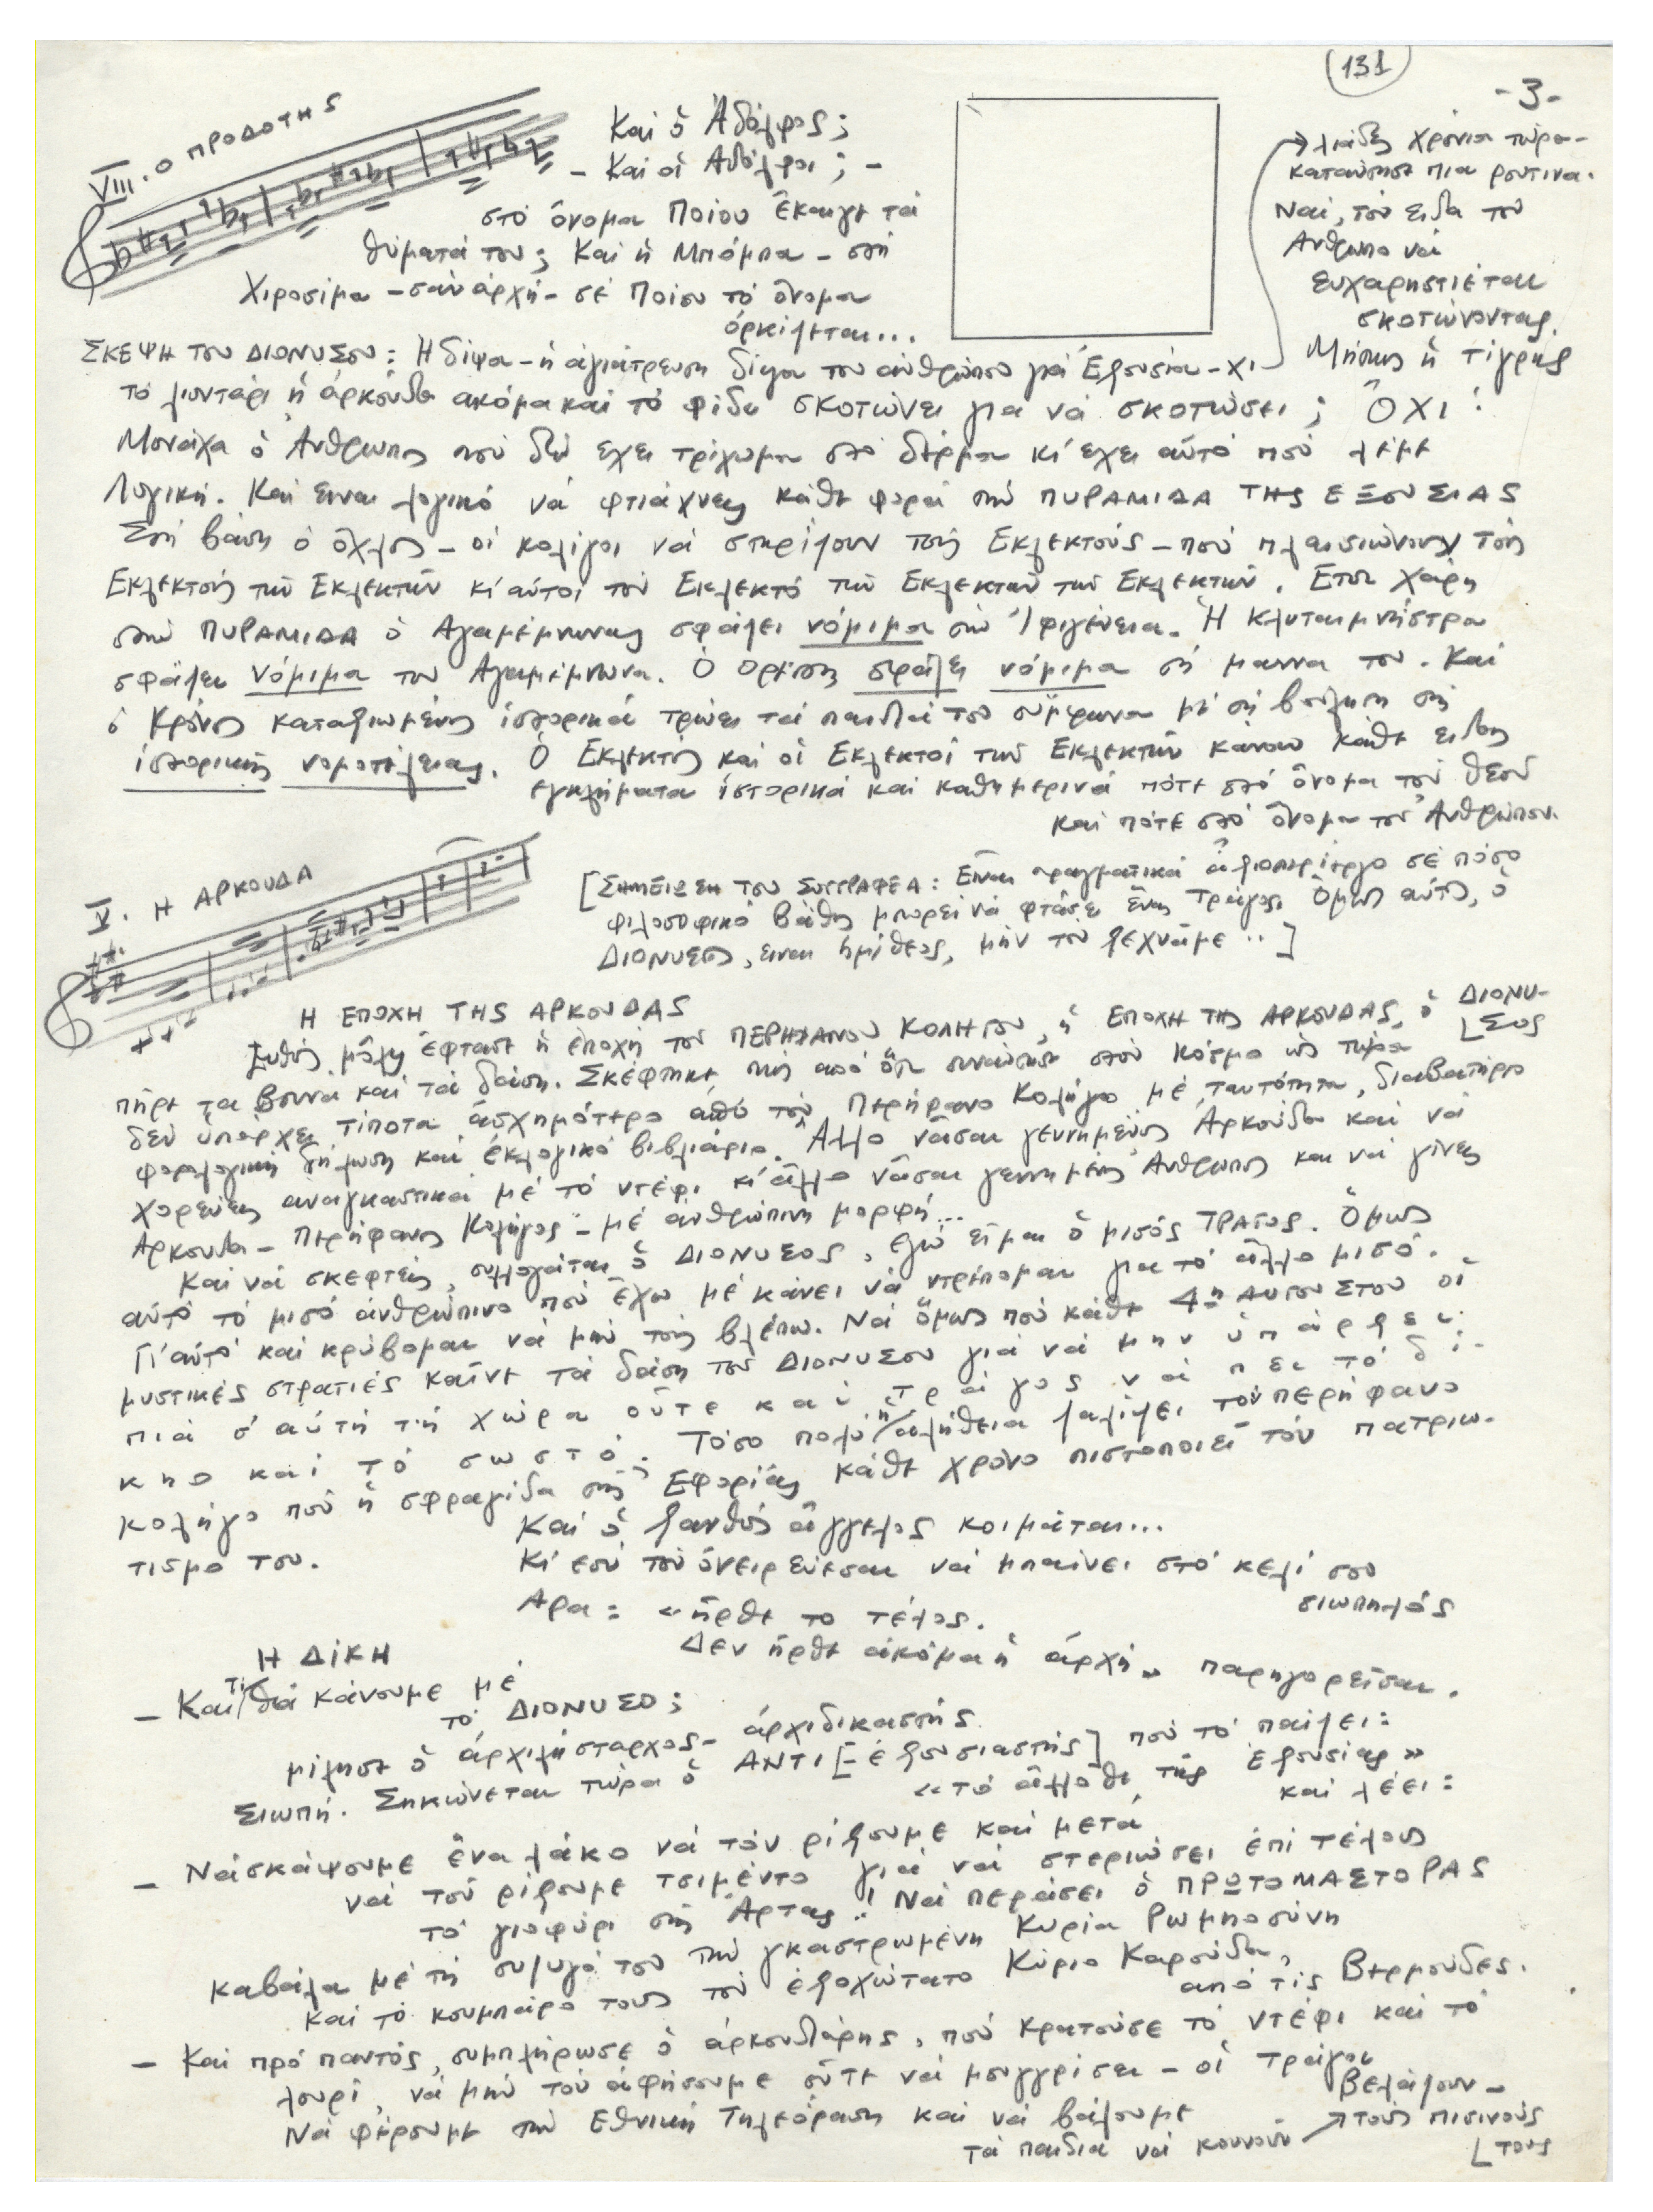 131
-3-
VIII. Ο ΠΡΟΔΟΤΗΣ
Καί ὁ Ἀδόλφος;
- Καί οἱ Αδόλφοι; -
στό ὄνομα Ποίου ἔκαιγε τά
θύματά του; Καί ἡ Μπόμπα - στή
Χιροσίμα - σάν ἀρχή - σέ Ποίου τό ὄνομα
ὁρκίζεται...
ΣΚΕΨΗ ΤΟΥ ΔΙΟΝΥΣΟΥ: Η δίψα - ἡ ἀγιάτρευτη δίψα του ἀνθρώπου γιά Ἐξουσία - χι-
λιάδες χρόνια τώρα -
κατάντησε πια ρουτινα.
Ναί, τόν ειδα τον
Ανθρωπο νά
ευχαρηστιέται
σκοτώνοντας.
Μήπως ἡ τίγρης
τό λιοντάρι ἡ ἀρκούδα ακόμα και τό φίδι σκοτώνει για νά σκοτώσει; ὌΧΙ!
Μονάχα ὁ Ἀνθρωπος πού δέν εχει τρίχωμα στό δέρμα κι' εχει αὐτό πού λέμε
Λογική. Καί ειναι λογικό νά φτιάχνεις κάθε φορά τήν ΠΥΡΑΜΙΔΑ ΤΗΣ ΕΞΟΥΣΙΑΣ
Στή βάση ὁ ὄχλος - οἱ κολίγοι νά στηρίζουν τούς Εκλεκτούς - πού πλαισιώνουν τούς
Εκλεκτούς τῶν Εκλεκτῶν κι' αὐτοί τόν Εκλεκτό τῶν Εκλεκτῶν τῶν Εκλεκτῶν. Ετσι χάρη
στήν ΠΥΡΑΜΙΔΑ ὁ Αγαμέμνωνας σφάζει νόμιμα τήν Ἰφιγένεια. Ἡ Κλυταιμνήστρα
σφάζει νόμιμα τον Αγαμέμνωνα. Ὁ Ορέστης σφάζει νόμιμα τή μαννα του. Καί
ὁ Κρόνος καταξιωμένος ἱστορικά τρώει τά παιδιά του σύμφωνα μέ τή βούληση τῆς
ἱστορικῆς νομοτέλειας. Ὁ Εκλεκτός και οἱ Εκλεκτοί τῶν Εκλεκτῶν κάνουν κάθε ειδους
εγκλήματα ἱστορικά και καθημερινά πότε στό ὄνομα τοῦ θεοῦ
και πότε στό ὄνομα τοῦ Ἀνθρώπου.
X. Η ΑΡΚΟΥΔΑ
[ΣΗΜΕΙΩΣΗ ΤΟΥ ΣΥΓΓΡΑΦΕΑ: Εἶναι πραγματικά ἀξιοπερίεργο σέ πόσο
φιλοσοφικό βάθος μπορεί νά φτάσει ἕνας Τράγος. Ὅμως αὐτός, ὁ
ΔΙΟΝΥΣΟΣ, ειναι ημίθεος, μήν το ξεχνᾶμε..]
Η ΕΠΟΧΗ ΤΗΣ ΑΡΚΟΥΔΑΣ
Εὐθύς μόλις ἔφτασε ἡ ἐποχή τοῦ ΠΕΡΗΦΑΝΟΥ ΚΟΛΗΓΟΥ, ἡ ΕΠΟΧΗ ΤΗΣ ΑΡΚΟΥΔΑΣ, ὁ ΔΙΟΝΥ-
ΣΟΣ
πῆρε τα βουνα και τά δάση. Σκέφτηκε πώς από ὅτι συνάντησε στόν κόσμο ὡς τώρα
δέν ὑπάρχει τίποτα ἀσχημότερο ἀπό τόν Περήφανο Κολήγο μέ ταυτότητα, διαβατήριο
φορολογική δήλωση και ἐκλογικό βιβλιάριο. Ἄλλο νἆσαι γεννημένος Ἀρκούδα και νά
χορεύεις αναγκαστικά μέ τό ντέφι κι' ἄλλο νἆσαι γεννημένος Ἀνθρωπος και νά γίνεις
Αρκουδα - Περήφανος Κολήγος - μέ ἀνθρώπινη μορφή...
Καί νά σκεφτεῖς, συλλογάται ὁ ΔΙΟΝΥΣΟΣ, εγώ εἶμαι ὁ μισός ΤΡΑΓΟΣ. Ὅμως
αὐτό τό μισό ἀνθρώπινο πού ἔχω μέ κάνει νά ντρέπομαι για τό ἄλλο μισό.
Γι' αὐτό και κρύβομαι νά μήν τούς βλέπω. Νά ὅμως πού κάθε 4η ΑΥΓΟΥΣΤΟΥ οἱ
μυστικές στρατιές καῖνε τά δάση τοῦ ΔΙΟΝΥΣΟΥ γιά νά μην ὑπάρξει
πιά σ' αὐτή τή χώρα οὔτε κάν τράγος νά πει τό δί-
κηο και τό σωστό. Τόσο πολύ ἡ ἀλήθεια ζαλίζει τόν περήφανο
κολήγο πού ἡ σφραγίδα τῆς Εφορίας κάθε χρόνο πιστοποιεῖ τόν πατριω-
τισμο του.
Καί ὁ ξανθός ἄγγελος κοιμάται...
Κι' εσύ τόν ὀνειρεύεσαι νά μπαίνει στό κελί σου
σιωπηλός
Αρα: «ἦρθε το τέλος.
Δεν ἦρθε ἀκόμα ἡ ἀρχή» παρηγορεῖσαι.
Η ΔΙΚΗ
- Και τί θά κάνουμε μέ
τό ΔΙΟΝΥΣΟ;
μίλησε ὁ ἀρχιλήσταρχος - ἀρχιδικαστής
Σιωπή. Σηκώνεται τώρα ὁ ΑΝΤΙ [-ἐξουσιαστής] πού τό παίζει:
«τό ἄλλοθι τῆς Ἐξουσίας»
και λέει:
- Νά σκάψουμε ἕνα λάκο νά τόν ρίξουμε και μετά
νά τοῦ ρίξουμε τσιμέντο γιά νά στεριώσει ἐπί τέλους
τό γιοφύρι τῆς Ἄρτας..! Νά περάσει ὁ ΠΡΩΤΟΜΑΣΤΟΡΑΣ
καβάλα μέ τή συζυγό του τήν γκαστρωμένη Κυρία Ρωμηοσύνη
και τό κουμπάρο τους τόν ἐξοχώτατο Κύριο Καρούδα,
από τίς Βερμούδες.
- Και πρό παντός, συμπλήρωσε ὁ ἀρκουδιάρης, πού κρατοῦσε τό ντέφι και τό
λουρί, νά μήν τοῦ ἀφήσουμε οὔτε νά μουγγρίσει - οἱ τράγοι
βελάζουν -
Νά φέρουμε τήν Εθνική Τηλεόραση και νά βάλουμε
τά παιδια νά κουνοῦν τούς πισινούς
τους